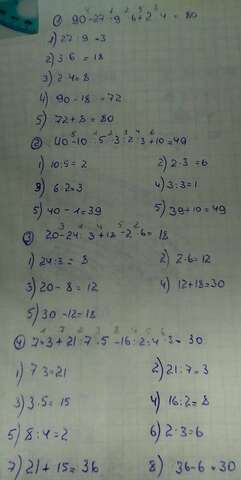 ① 90-27:9·6+2·4 = 80
1) 27:9=3
2) 3·6 = 18
3) 2·4= 8
4) 90-18=72
5) 72+8=80
② 40-10:5·3:2:3+10=49
1) 10:5=2
2) 2·3=6
3) 6:2=3
4) 3:3=1
5) 40-1=39
6) 39+10=49
③ 20-24:3+18-2·6=18
1) 24:3= 8
2) 2·6=12
3) 20-8=12
4) 12+18=30
5) 30-12=18
④ 7·3+21:7·5-16:2:4·3=30
1) 7·3=21
2) 21:7=3
3) 3·5=15
4) 16:2=8
5) 8:4=2
6) 2·3=6
7) 21+15=36
8) 36-6=30